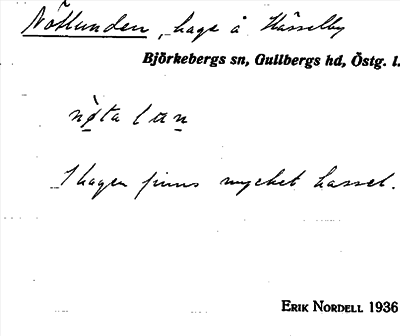 Nötlunden, hage å Hässelby
Björkebergs sn, Gullbergs hd, Östg. l.
nøta lun
I hagen finns mycket hassel.
ERIK NORDELL 1936